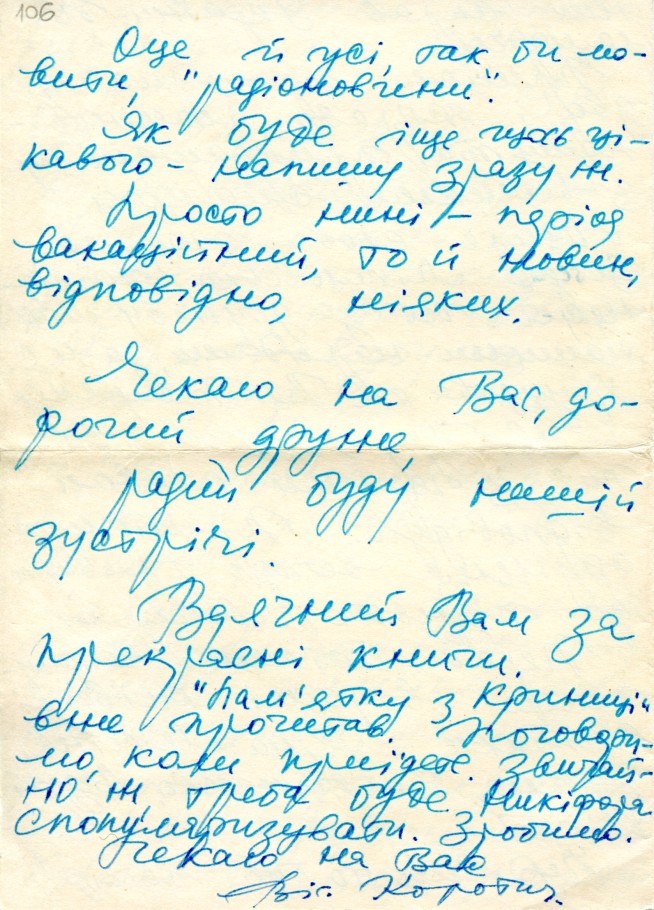 106
Оце й усі, так би мо-
вити, "радіоновини".
Як буде іще щось ці-
кавого – напишу зразу ж.
Просто нині – період
вакаційний, то й новин,
відповідно, ніяких.
Чекаю на Вас, до-
рогий друже,
радий буду нашій
зустрічі.
Вдячний Вам за
прекрасні книги.
"Пам'ятку з Криниці"
вже прочитав. Поговори-
мо, коли приїдете. Звичай-
но ж, треба буде Никифора
спопуляризувати. Зробимо.
Чекаю на Вас
Віт. Коротич.